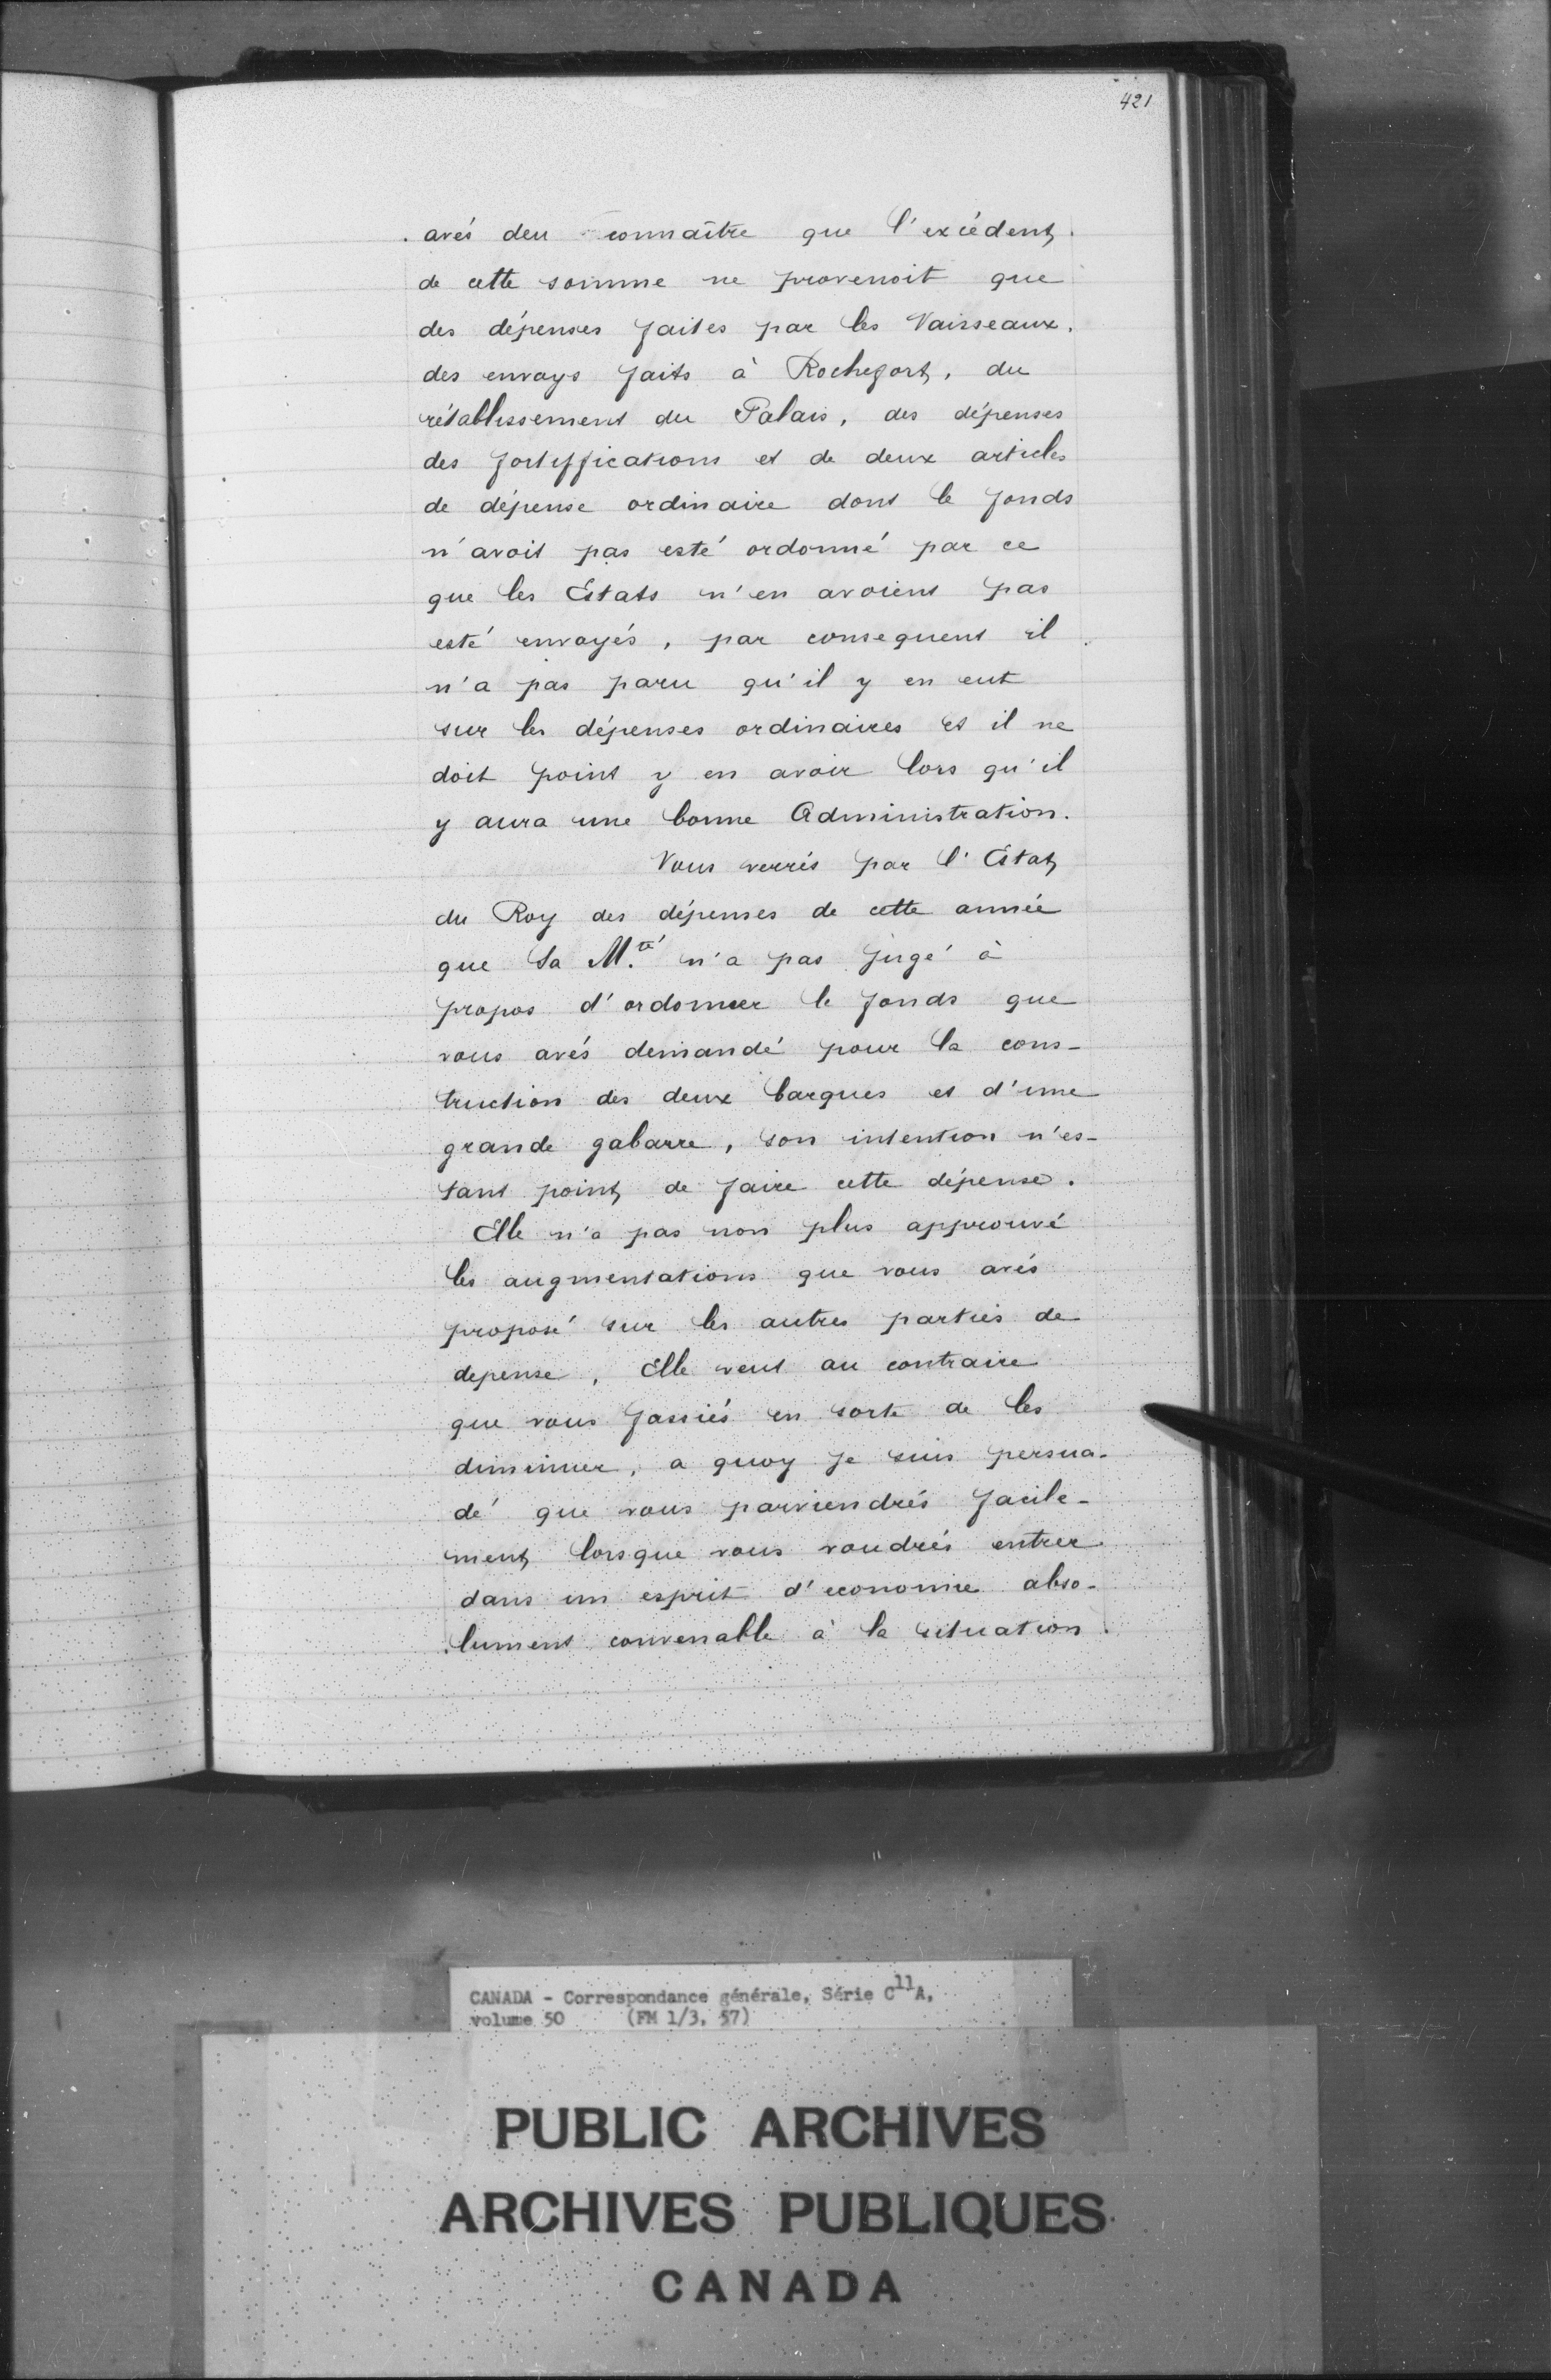 421
avés deu connaître que l'excédent
de cette somme ne provenoit que
des dépenses faites par les Vaisseaux.
des envoys faits à Rochefort, du
rétablissement du Palais, des dépenses
des fortiffications et de deux articles
de dépense ordinaire dont le fonds
n'avoit pas esté ordonné par ce
que les Estats n'en avoient pas
esté envoyés, par consequent il
n'a pas paru qu'il y en eut
sur les dépenses ordinaires et il ne
doit point y en avoir lors qu'il
y aura une bonne Administration.
Vous verrés par l'Estat
du Roy des dépenses de cette année
que Sa M.té n'a pas jugé à
propos d'ordonner le fonds que
vous avés demandé pour la cons-
truction des deux barques et d'une
grande gabarre, son intention n'es-
tant point de faire cette dépense.
Elle n'a pas non plus approuvé
les augmentations que vous avés
proposé sur les autres parties de
depense, Elle veut au contraire
que vous fassiés en sorte de les
diminuer, a quoy je suis persua-
dé que vous parviendrés facile-
ment lorsque vous voudrés entrer
dans un esprit d'economie abso-
lument convenable à la situation.
CANADA - Correspondance générale, Série C11A,
volume 50 (FM 1/3, 57)
PUBLIC ARCHIVES
ARCHIVES PUBLIQUES
CANADA